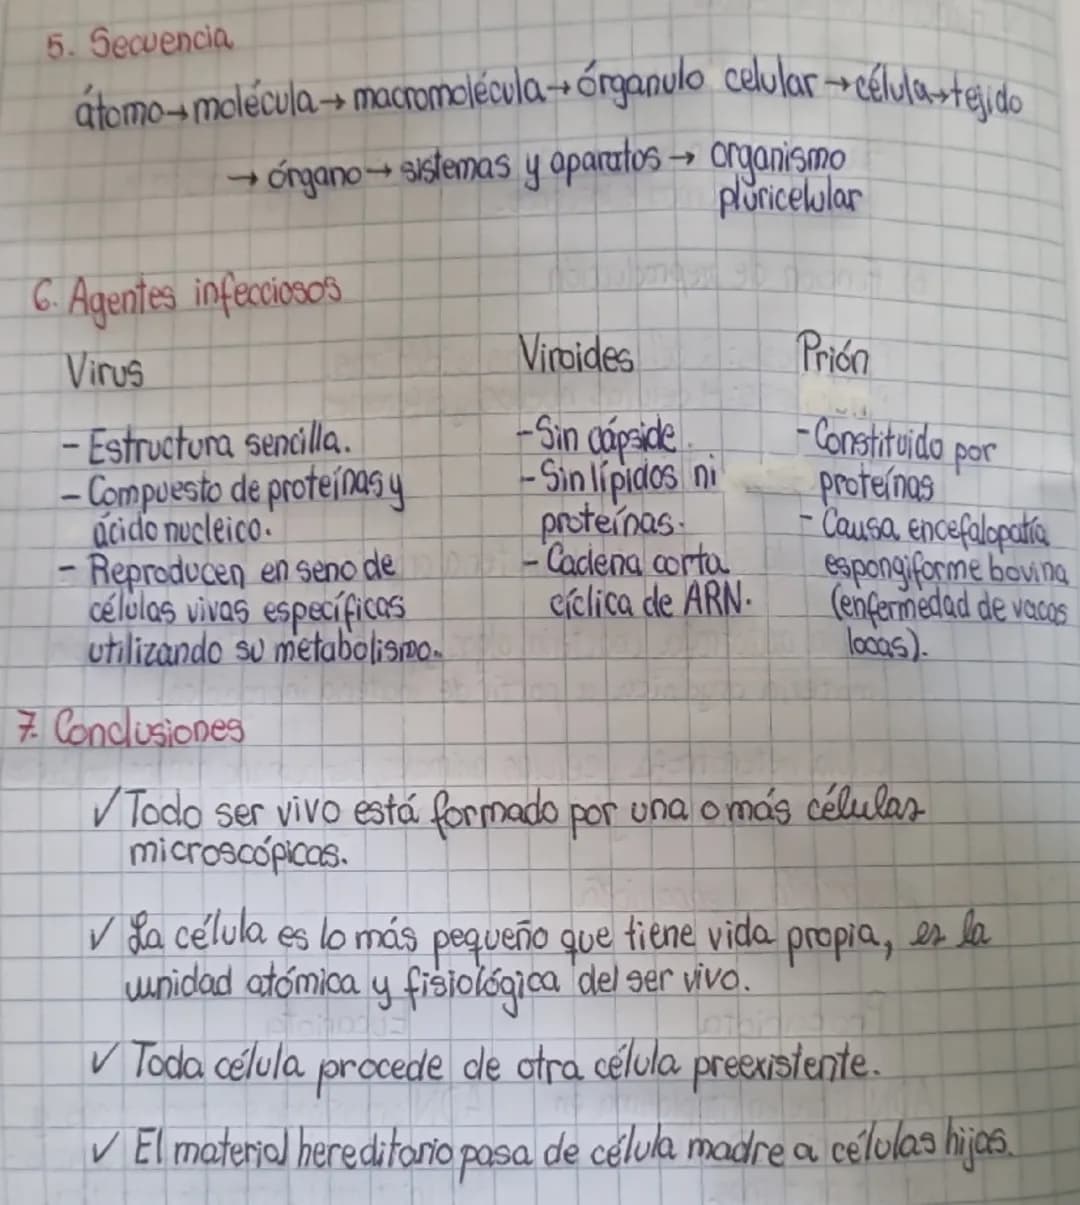 5. Secuencia
átomo→molécula→macromolécula→órganulo celular→célula→tejido
→órgano→sistemas y aparatos→organismo
pluricelular
6. Agentes infecciosos
Virus
- Estructura sencilla.
- Compuesto de proteínas y
ácido nucleico.
- Reproducen en seno de
células vivas específicas
utilizando su metabolismo.
Viroides
- Sin cápside.
- Sin lípidos ni
proteínas.
- Cadena corta
cíclica de ARN.
Prión
- Constituido por
proteínas
- Causa encefalopatía
espongiforme bovina
(enfermedad de vacas
locas).
7. Conclusiones
✓ Todo ser vivo está formado por una o más células
microscópicas.
✓ La célula es lo más pequeño que tiene vida propia, es la
unidad atómica y fisiológica del ser vivo.
✓ Toda célula procede de otra célula preexistente.
✓ El material hereditario pasa de célula madre a células hijas.